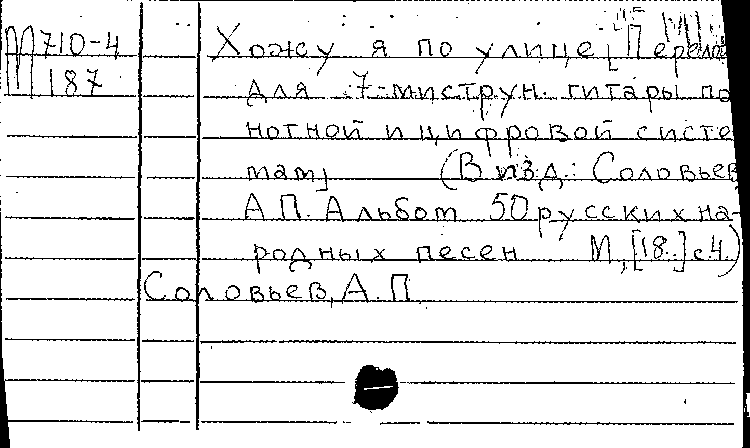 М 710-4
187
Хожу я по улице [Перелож
для 7-миструн. гитары по
нотной и цифровой систе
мам] (В изд.: Соловьев
А.П. Альбом 50 русских на-
родных песен М,[18..] с.4)
Соловьев, А.П.